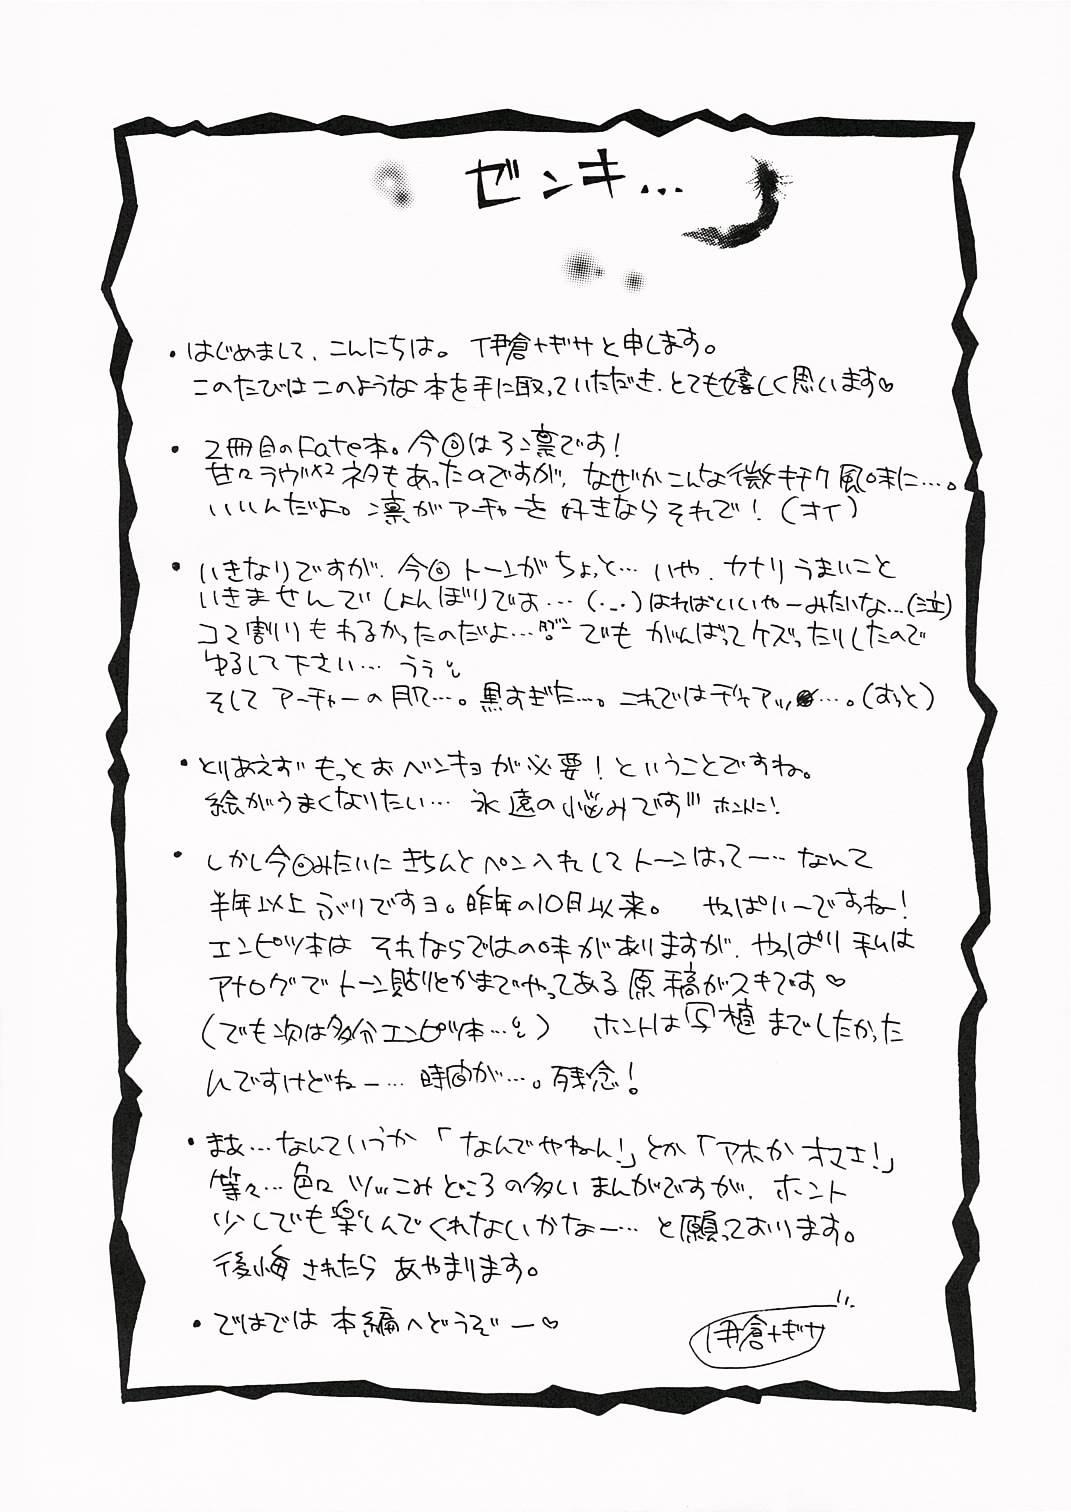 ゼンキ…
・はじめまして、こんにちは。伊倉ナギサと申します。
このたびはこのような本を手に取っていただき、とても嬉しく思います♡
・2冊目のFate本。今回は弓凛です!
甘々ラヴ×2ネタもあったのですが、なぜかこんな微キチク風味に…。
いいんだよ。凛がアーチャーを好きならそれで!(オイ)
・いきなりですが、今回トーンがちょっと…いや、カナリうまいこと
いきませんでしょんぼりです…(._.)はればいいやーみたいな…(泣)
コマ割りもわるかったのだよ…でもがんばってケズったりしたので
ゆるして下さい…うぅ
そしてアーチャーの肌…。黒すぎた…。これではディアッ…。(おっと)
・とりあえずもっとおベンキョが必要!ということですね。
絵がうまくなりたい…永遠の悩みです ホントに!
・しかし今回みたいにきちんとペン入れしてトーンはってー…なんて
半年以上ぶりですヨ。昨年の10月以来。 やっぱいーですね!
エンピツ本はそれならではの味がありますが、やっぱり私は
アナログでトーン貼りとかまでやってある原稿がスキです♡
(でも次は多分エンピツ本…) ホントは写植までしたかった
んですけどねー…時間が…。残念!
・まあ…なんていうか「なんでやねん!」とか「アホかオマエ!」
等々…色々ツッこみどころの多いまんがですが、ホント
少しでも楽しんでくれないかなー…と願っております。
後悔されたらあやまります。
・ではでは本編へどうぞー♡
伊倉ナギサ